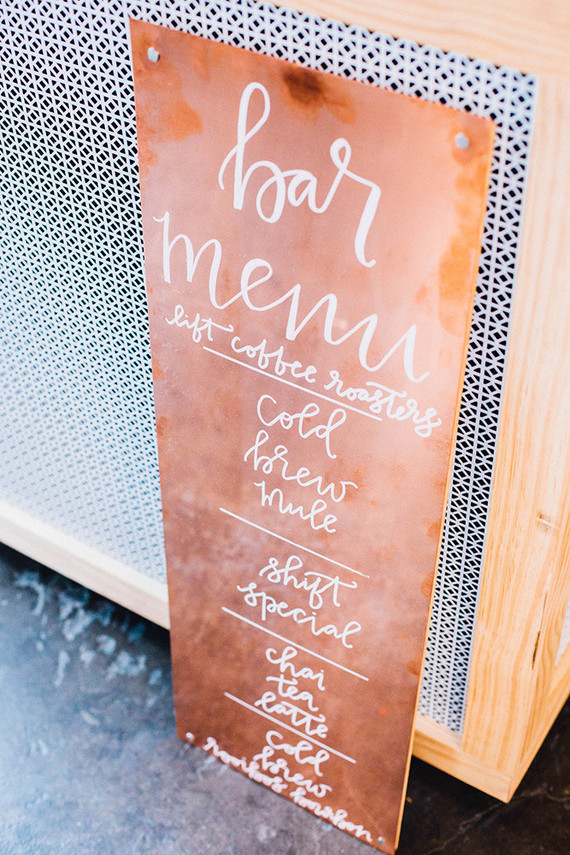 bar
menu
lift coffee roasters
cold
brew
mule
shift
special
chai
tea
latte
cold
brew
rooibos bourbon